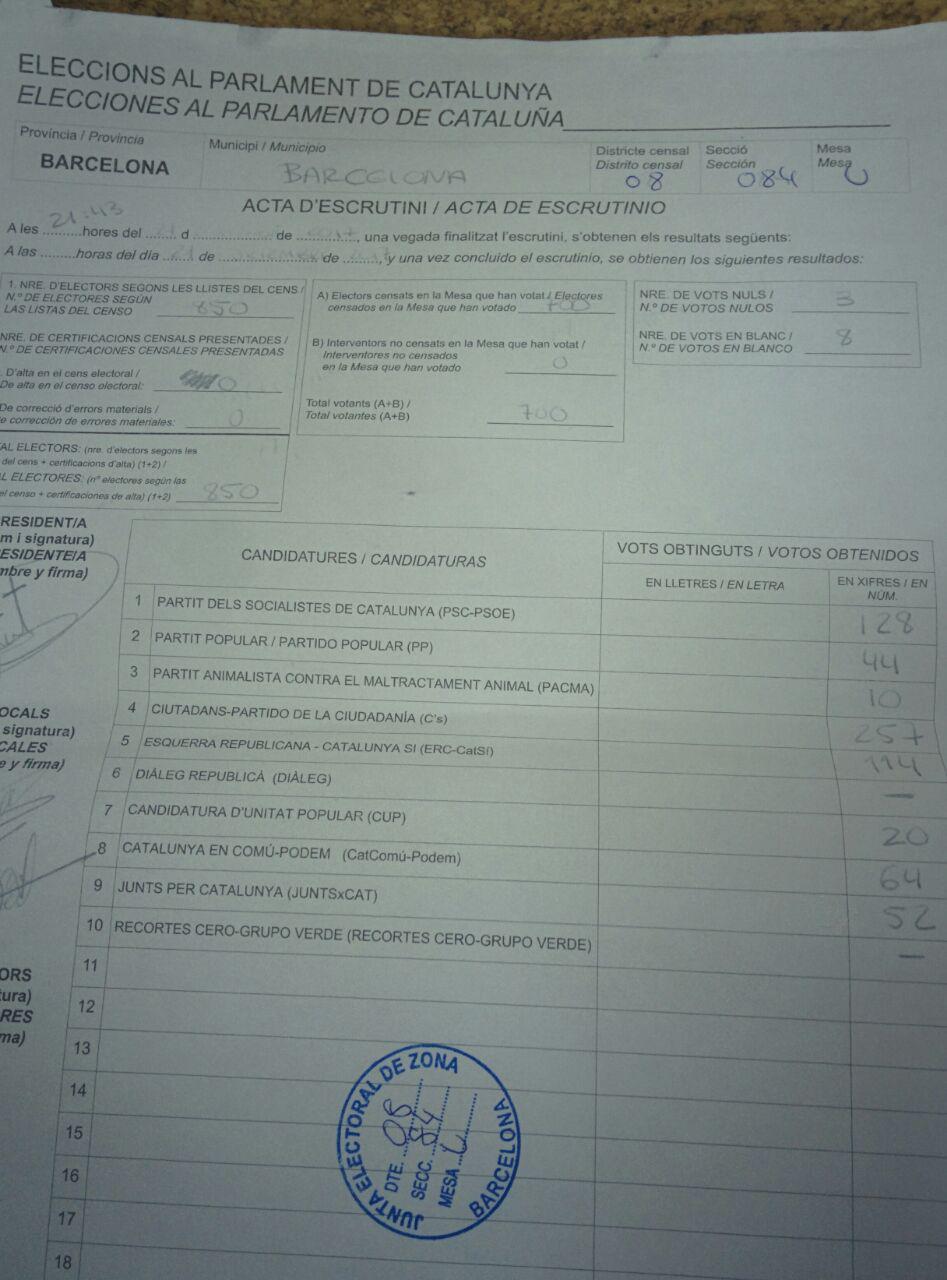 ELECCIONS AL PARLAMENT DE CATALUNYA
ELECCIONES AL PARLAMENTO DE CATALUÑA
Província / Provincia
BARCELONA
Municipi / Municipio
BARCELONA
Districte censal
Distrito censal
08
Secció
Sección
084
Mesa
Mesa
U
ACTA D'ESCRUTINI / ACTA DE ESCRUTINIO
21:43
A les ..........hores del ........ d .................... de ............, una vegada finalitzat l'escrutini, s'obtenen els resultats següents:
A las .........horas del día ...... de ..................... de ........, y una vez concluido el escrutinio, se obtienen los siguientes resultados:
1. NRE. D'ELECTORS SEGONS LES LLISTES DEL CENS /
N.º DE ELECTORES SEGÚN
LAS LISTAS DEL CENSO 850
NRE. DE CERTIFICACIONS CENSALS PRESENTADES /
N.º DE CERTIFICACIONES CENSALES PRESENTADAS
D'alta en el cens electoral /
De alta en el censo electoral: 0
De correcció d'errors materials /
e corrección de errores materiales: 0
AL ELECTORS: (nre. d'electors segons les
del cens + certificacions d'alta) (1+2) /
L ELECTORES: (nº electores según las
el censo + certificaciones de alta) (1+2) 850
A) Electors censats en la Mesa que han votat / Electores
censados en la Mesa que han votado 700
B) Interventors no censats en la Mesa que han votat /
Interventores no censados
en la Mesa que han votado 0
Total votants (A+B) /
Total votantes (A+B) 700
NRE. DE VOTS NULS /
N.º DE VOTOS NULOS 3
NRE. DE VOTS EN BLANC /
N.º DE VOTOS EN BLANCO 8
RESIDENT/A
m i signatura)
ESIDENTE/A
mbre y firma)
OCALS
signatura)
CALES
e y firma)
ORS
tura)
RES
ma)
CANDIDATURES / CANDIDATURAS
VOTS OBTINGUTS / VOTOS OBTENIDOS
EN LLETRES / EN LETRA
EN XIFRES / EN
NÚM.
1 PARTIT DELS SOCIALISTES DE CATALUNYA (PSC-PSOE) 128
2 PARTIT POPULAR / PARTIDO POPULAR (PP) 44
3 PARTIT ANIMALISTA CONTRA EL MALTRACTAMENT ANIMAL (PACMA) 10
4 CIUTADANS-PARTIDO DE LA CIUDADANÍA (C's) 257
5 ESQUERRA REPUBLICANA - CATALUNYA SI (ERC-CatSí) 114
6 DIÀLEG REPUBLICÀ (DIÀLEG) —
7 CANDIDATURA D'UNITAT POPULAR (CUP) 20
8 CATALUNYA EN COMÚ-PODEM (CatComú-Podem) 64
9 JUNTS PER CATALUNYA (JUNTSxCAT) 52
10 RECORTES CERO-GRUPO VERDE (RECORTES CERO-GRUPO VERDE) —
11
12
13
14
15
16
17
18
JUNTA ELECTORAL DE ZONA
BARCELONA
DTE. 08
SECC. 84
MESA U